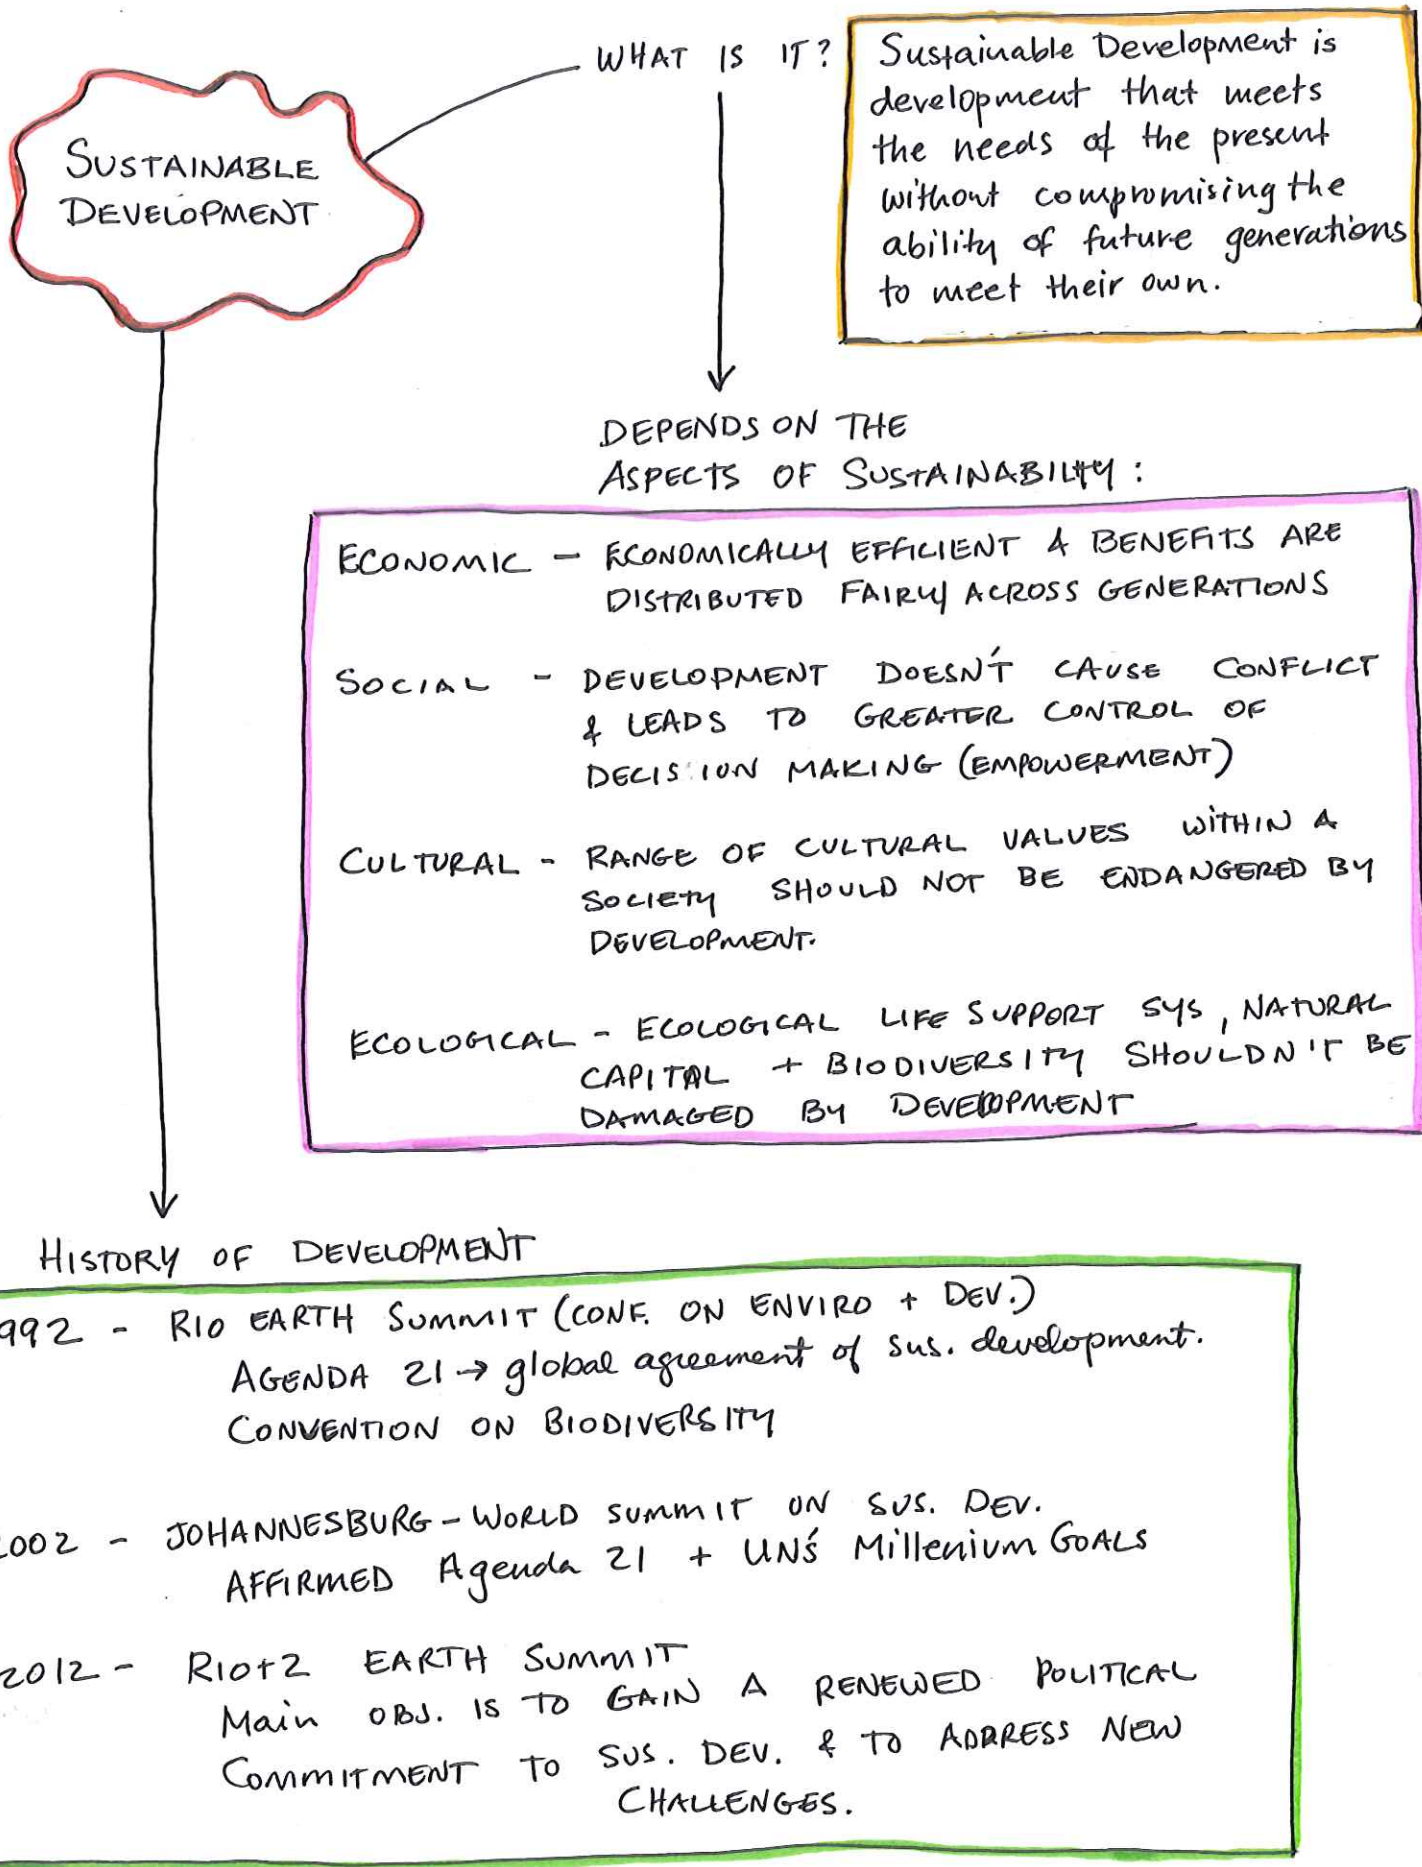 SUSTAINABLE
DEVELOPMENT
WHAT IS IT?
Sustainable Development is
development that meets
the needs of the present
without compromising the
ability of future generations
to meet their own.
DEPENDS ON THE
ASPECTS OF SUSTAINABILITY:
ECONOMIC - ECONOMICALLY EFFICIENT & BENEFITS ARE
DISTRIBUTED FAIRLY ACROSS GENERATIONS
SOCIAL - DEVELOPMENT DOESN'T CAUSE CONFLICT
& LEADS TO GREATER CONTROL OF
DECISION MAKING (EMPOWERMENT)
CULTURAL - RANGE OF CULTURAL VALUES WITHIN A
SOCIETY SHOULD NOT BE ENDANGERED BY
DEVELOPMENT.
ECOLOGICAL - ECOLOGICAL LIFE SUPPORT SYS, NATURAL
CAPITAL + BIODIVERSITY SHOULDN'T BE
DAMAGED BY DEVELOPMENT
HISTORY OF DEVELOPMENT
992 - RIO EARTH SUMMIT (CONF. ON ENVIRO + DEV.)
AGENDA 21 → global agreement of sus. development.
CONVENTION ON BIODIVERSITY
2002 - JOHANNESBURG - WORLD SUMMIT ON SUS. DEV.
AFFIRMED Agenda 21 + UN'S Millenium GOALS
2012 - RIO+2 EARTH SUMMIT
Main OBJ. IS TO GAIN A RENEWED POLITICAL
COMMITMENT TO SUS. DEV. & TO ADDRESS NEW
CHALLENGES.